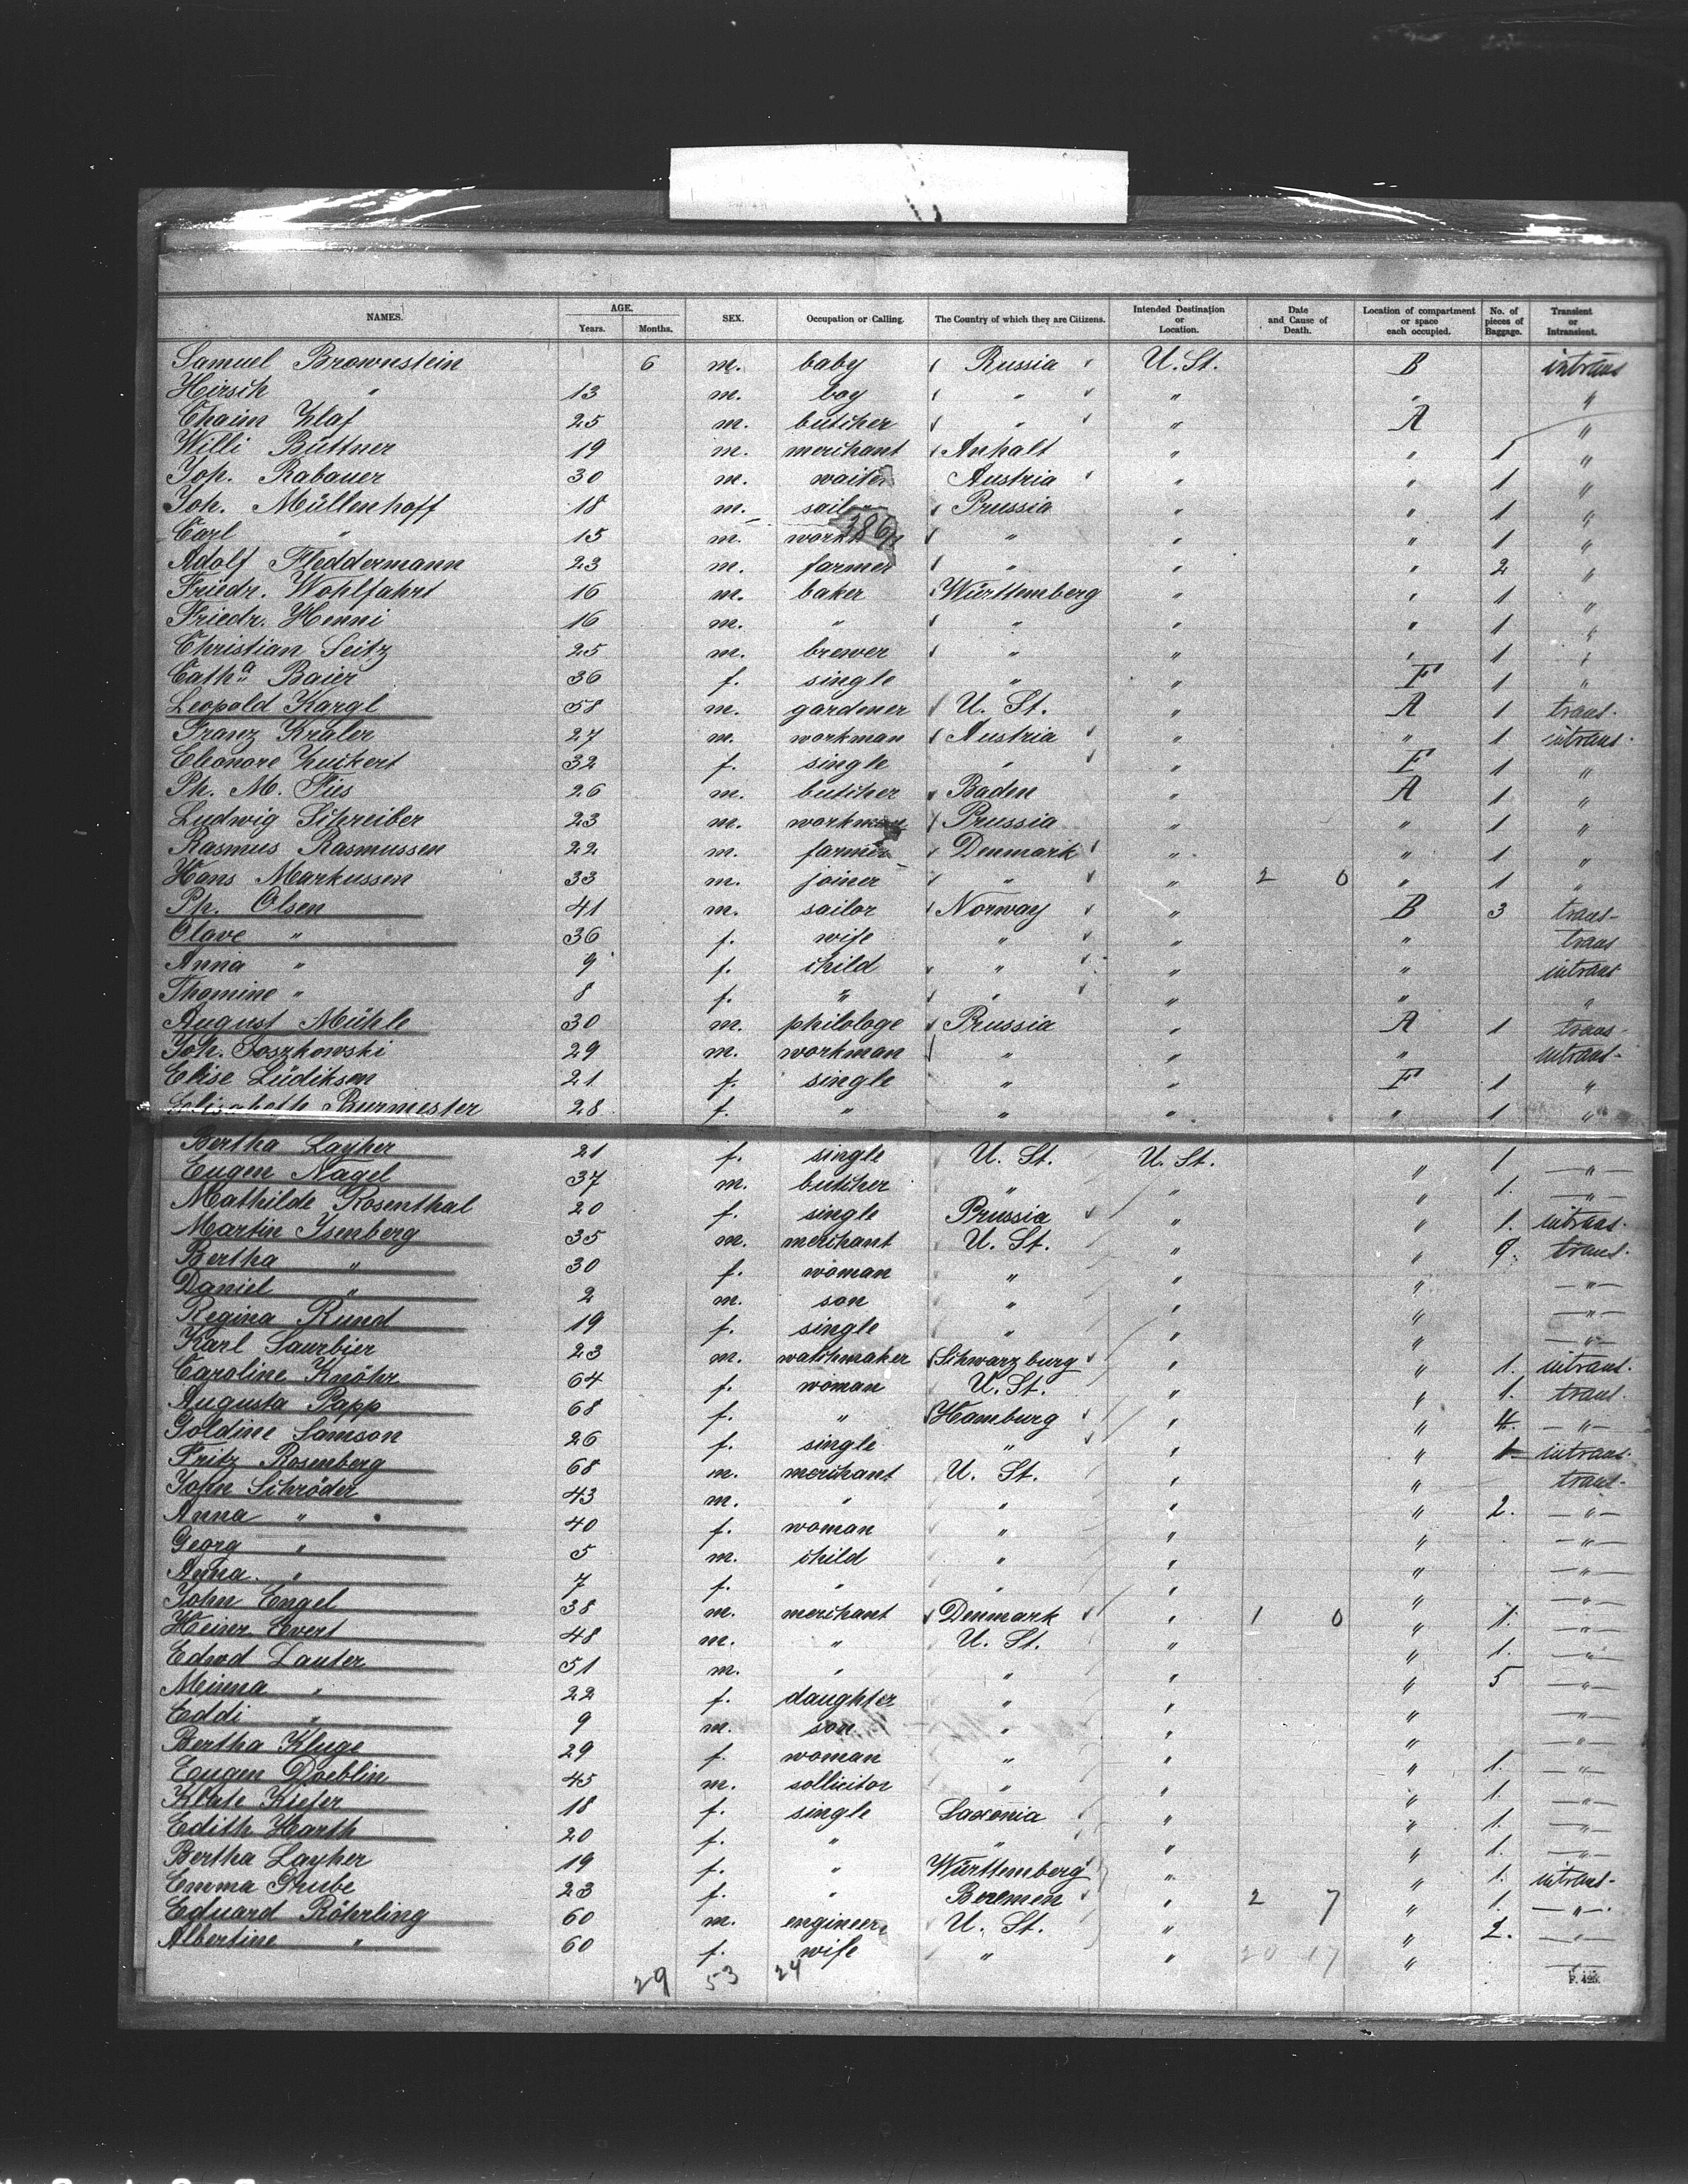 NAMES. AGE. Years. Months. SEX. Occupation or Calling. The Country of which they are Citizens. Intended Destination or Location. Date and Cause of Death. Location of compartment or space each occupied. No. of pieces of Baggage. Transient or Intransient.
Samuel Brownstein 6 m. baby Russia U. St. B intrans
Hirsch " 13 m. boy " " " "
Chaim Zlaf 25 m. butcher " " A "
Willi Büttner 19 m. merchant Anhalt " " 1 "
Joh. Rabauer 30 m. waiter Austria " " 1 "
Joh. Müllenhoff 18 m. Prussia " " 1 "
Carl " 15 m. 386 " " " 1 "
Adolf Fleddermann 23 m. farmer " " " 2 "
Friedr. Wohlfahrt 16 m. baker Württemberg " " 1 "
Friedr. Henni 16 m. " " " " 1 "
Christian Seitz 25 m. brewer " " " 1 "
Catha Baier 36 f. single " " F 1 "
Leopold Kargl 58 m. gardener U. St. " A 1 trans.
Franz Kraler 27 m. workman Austria " " 1 intrans.
Eleonore Zuckert 32 f. single " " F 1 "
Ph. M. Fies 26 m. butcher Baden " A 1 "
Ludwig Schreiber 23 m. workman Prussia " " 1 "
Rasmus Rasmussen 22 m. farmer Denmark " " 1 "
Hans Markussen 33 m. joiner " " 2 0 " 1 "
Ph. Olsen 41 m. sailor Norway " B 3 trans-
Olave " 36 f. wife " " " trans
Anna " 9 f. child " " " intrans
Thomine " 8 f. " " " " "
August Mühle 30 m. philologe Prussia " A 1 trans-
Joh. 29 m. workman " " " intrans-
Elise Lüdiksen 21 f. single " " F 1 "
Elisabeth Burmester 28 f. " " " " 1 "
Bertha Layher 21 f. single U. St. U. St. " 1 "
Eugen Nagel 37 m. butcher " " " 1. "
Mathilde Rosenthal 20 f. single Prussia " " 1. intrans.
Martin Isenberg 35 m. merchant U. St. " " 9. trans.
Bertha " 30 f. woman " " " "
Daniel " 2 m. son " " " "
Regina Rund 19 f. single " " " "
Karl Saurbier 23 m. watchmaker Schwarzburg " " 1. intrans.
Caroline Knöhr 64 f. woman U. St. " " 1. trans.
Augusta Papp 68 f. " Hamburg " " 4. "
Goldine Samson 26 f. single " " " 1 intrans.
Fritz Rosenberg 68 m. merchant U. St. " " trans.
John Schröder 43 m. " " " " 2. "
Anna " 40 f. woman " " " "
Georg " 5 m. child " " " "
Anna " 7 f. " " " " "
John Engel 38 m. merchant Denmark " 1 0 " 1. "
Heinr. Evert 48 m. " U. St. " " 1. "
Edwd Lauter 51 m. " " " " 5 "
Minna " 22 f. daughter " " " "
Eddi " 9 m. son " " " "
Bertha Kluge 29 f. woman " " " 1. "
Eugen Doeblin 45 m. sollicitor " " " 1. "
Kiefer 18 f. single Saxonia " " 1. "
Edith Harth 20 f. " " " " 1. "
Bertha Layher 19 f. " Württemberg " " 1. intrans-
Emma Grube 23 f. " Bremen " 2 7 " 1. "
Eduard Röhrling 60 m. engineer U. St. " " 2. "
Albertine " 60 f. wife " " 20 17 " "
29 53 24